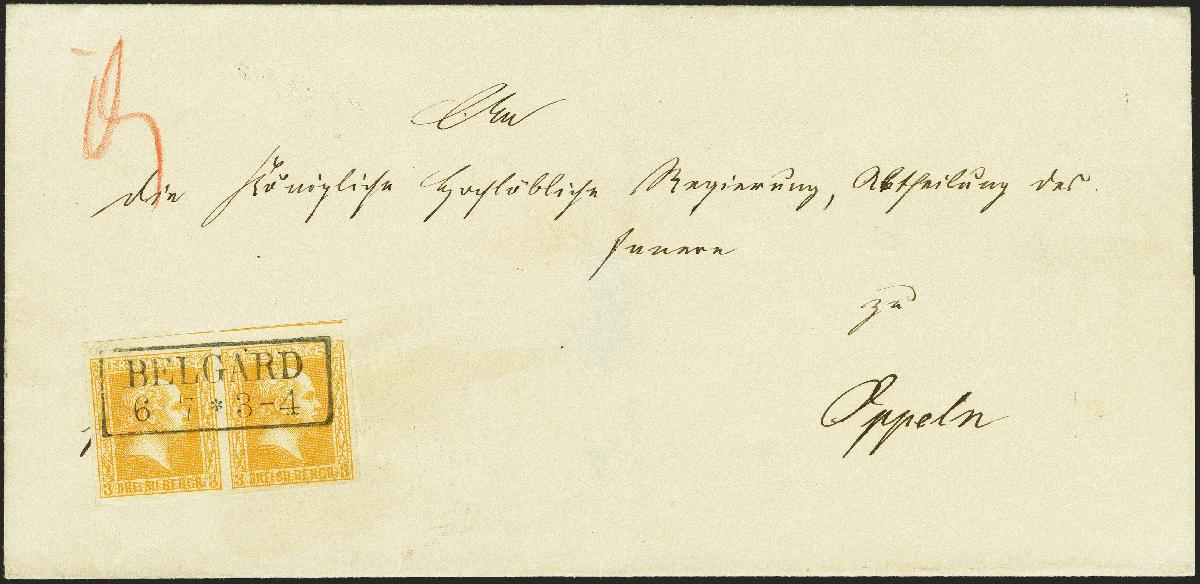 An
die Königliche Hochlöbliche Regierung, Abtheilung des
Innern
zu
Oppeln
BELGARD
6 7 * 3-4
3 DREI SILBERGR. 3 3 DREI SILBERGR. 3